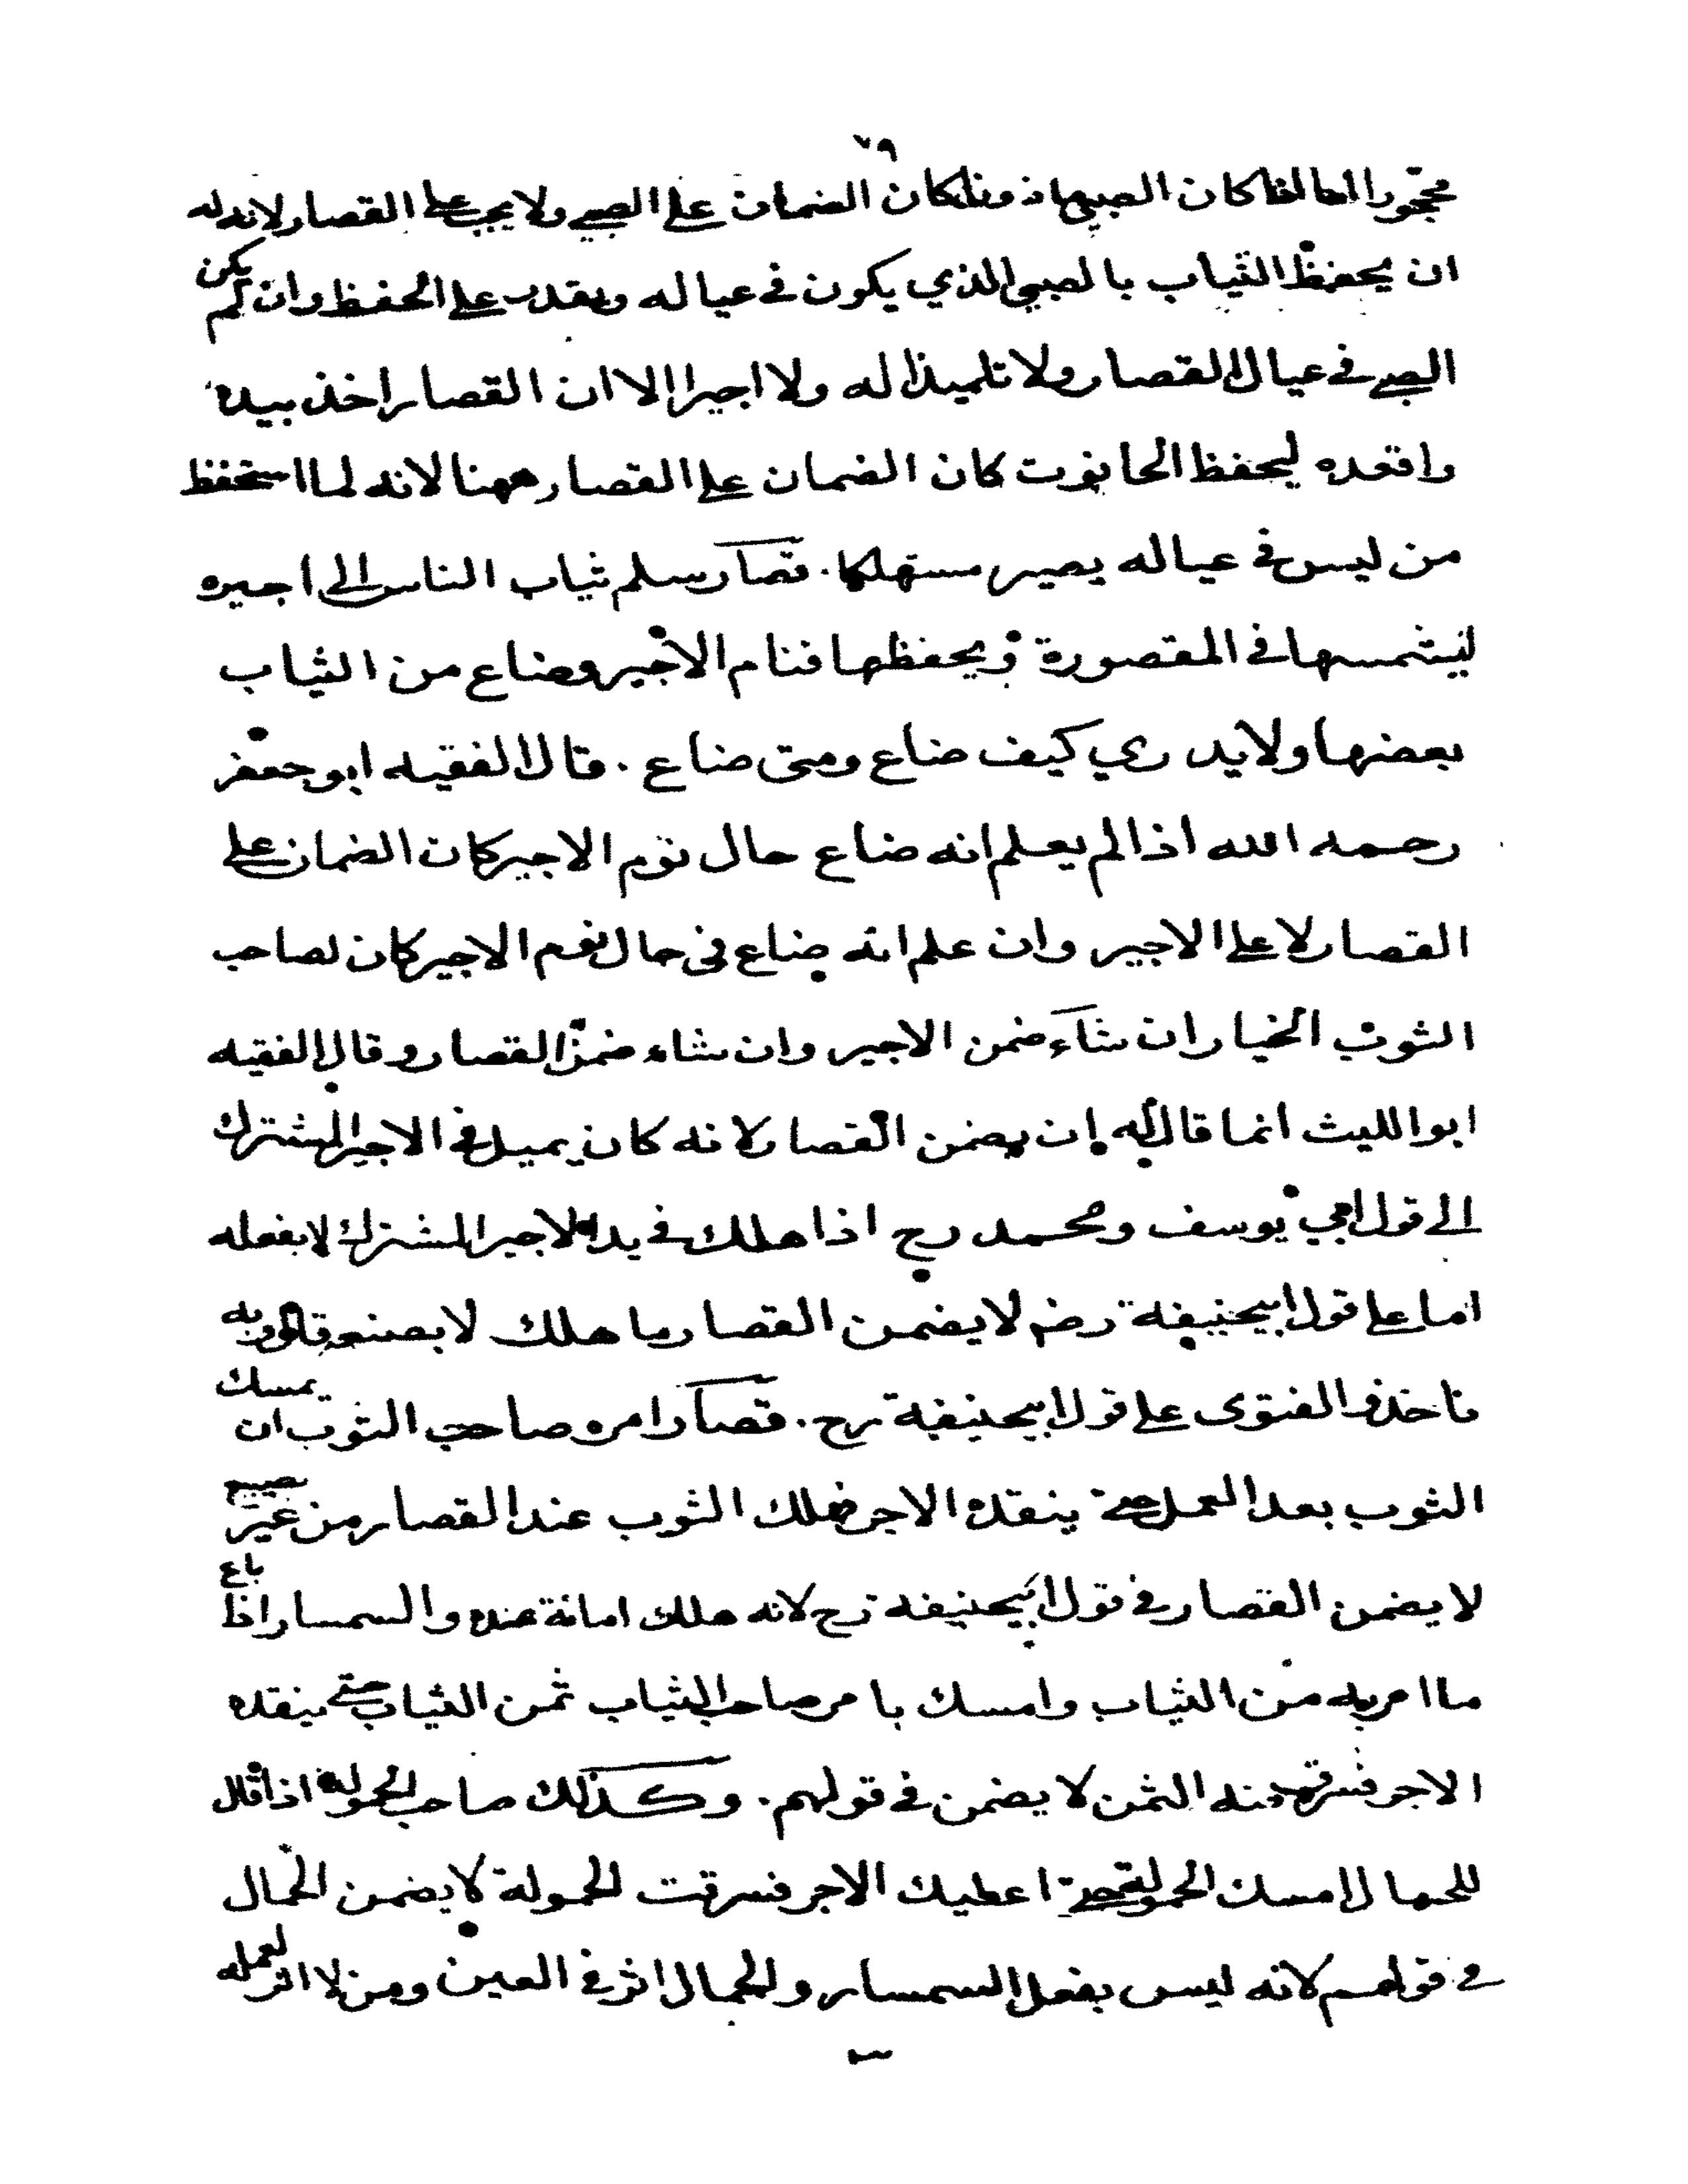 ٧٩
محجورا اما اذا كان الصبي ماذونا كان الضمان على الصبي ولا يجب على القصار لانه له
ان يحفظ الثياب بالصبي الذي يكون في عياله ويقدر على الحفظ وان لم يكن
الصبي في عيال القصار ولا تلميذا له ولا اجيرا الا ان القصار اخذ بيده
واقعده ليحفظ الحانوت كان الضمان على القصار ههنا لانه لما استحفظ
من ليس في عياله يصير مستهلكا . قصار سلم ثياب الناس الى اجيره
ليشمسها في المقصورة ويحفظها فنام الاجير وضاع من الثياب
بعضها ولا يدري كيف ضاع ومتى ضاع . قال الفقيه ابو جعفر
رحمه الله اذا لم يعلم انه ضاع حال نوم الاجير كان الضمان على
القصار لا على الاجير وان علم انه ضاع في حال نوم الاجير كان لصاحب
الثوب الخيار ان شاء ضمن الاجير وان شاء ضمن القصار وقال الفقيه
ابو الليث انما قال له ان يضمن القصار لانه كان يميل في الاجير المشترك
الى قول ابي يوسف ومحمد رح اذا هلك في يد الاجير المشترك لا بفعله
اما على قول ابيحنيفة رضه لا يضمن القصار ما هلك لا بصنعه قال وبه
ناخذ والفتوى على قول ابيحنيفة رح . قصار امره صاحب الثوب ان يمسك
الثوب بعد العمل حتى ينقده الاجر فهلك الثوب عند القصار من غير تضييع
لا يضمن القصار في قول ابيحنيفه رح لانه هلك امانة عنده والسمسار اذا باع
ما امر به من الثياب وامسك بامر صاحب الثياب ثمن الثياب حتى ينقده
الاجر فسرق منه الثمن لا يضمن في قولهم . وكذلك صاحب الحمولة اذا قال
للحمال امسك الحمولة حتى اعطيك الاجر فسرقت الحمولة لا يضمن الحمال
في قولهم لانه ليس بفعل السمسار والحمال اثر في العين ومن لا اثر لعمله